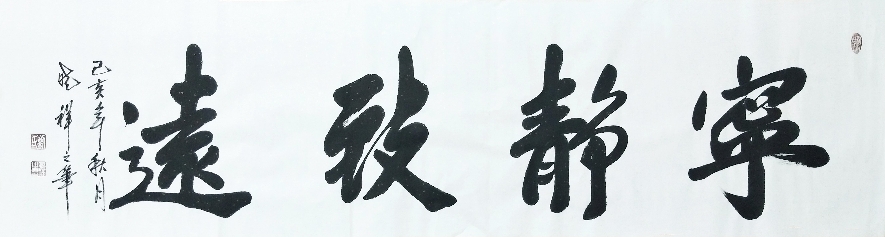 寧靜致遠
己亥年秋月
晓祥之筆